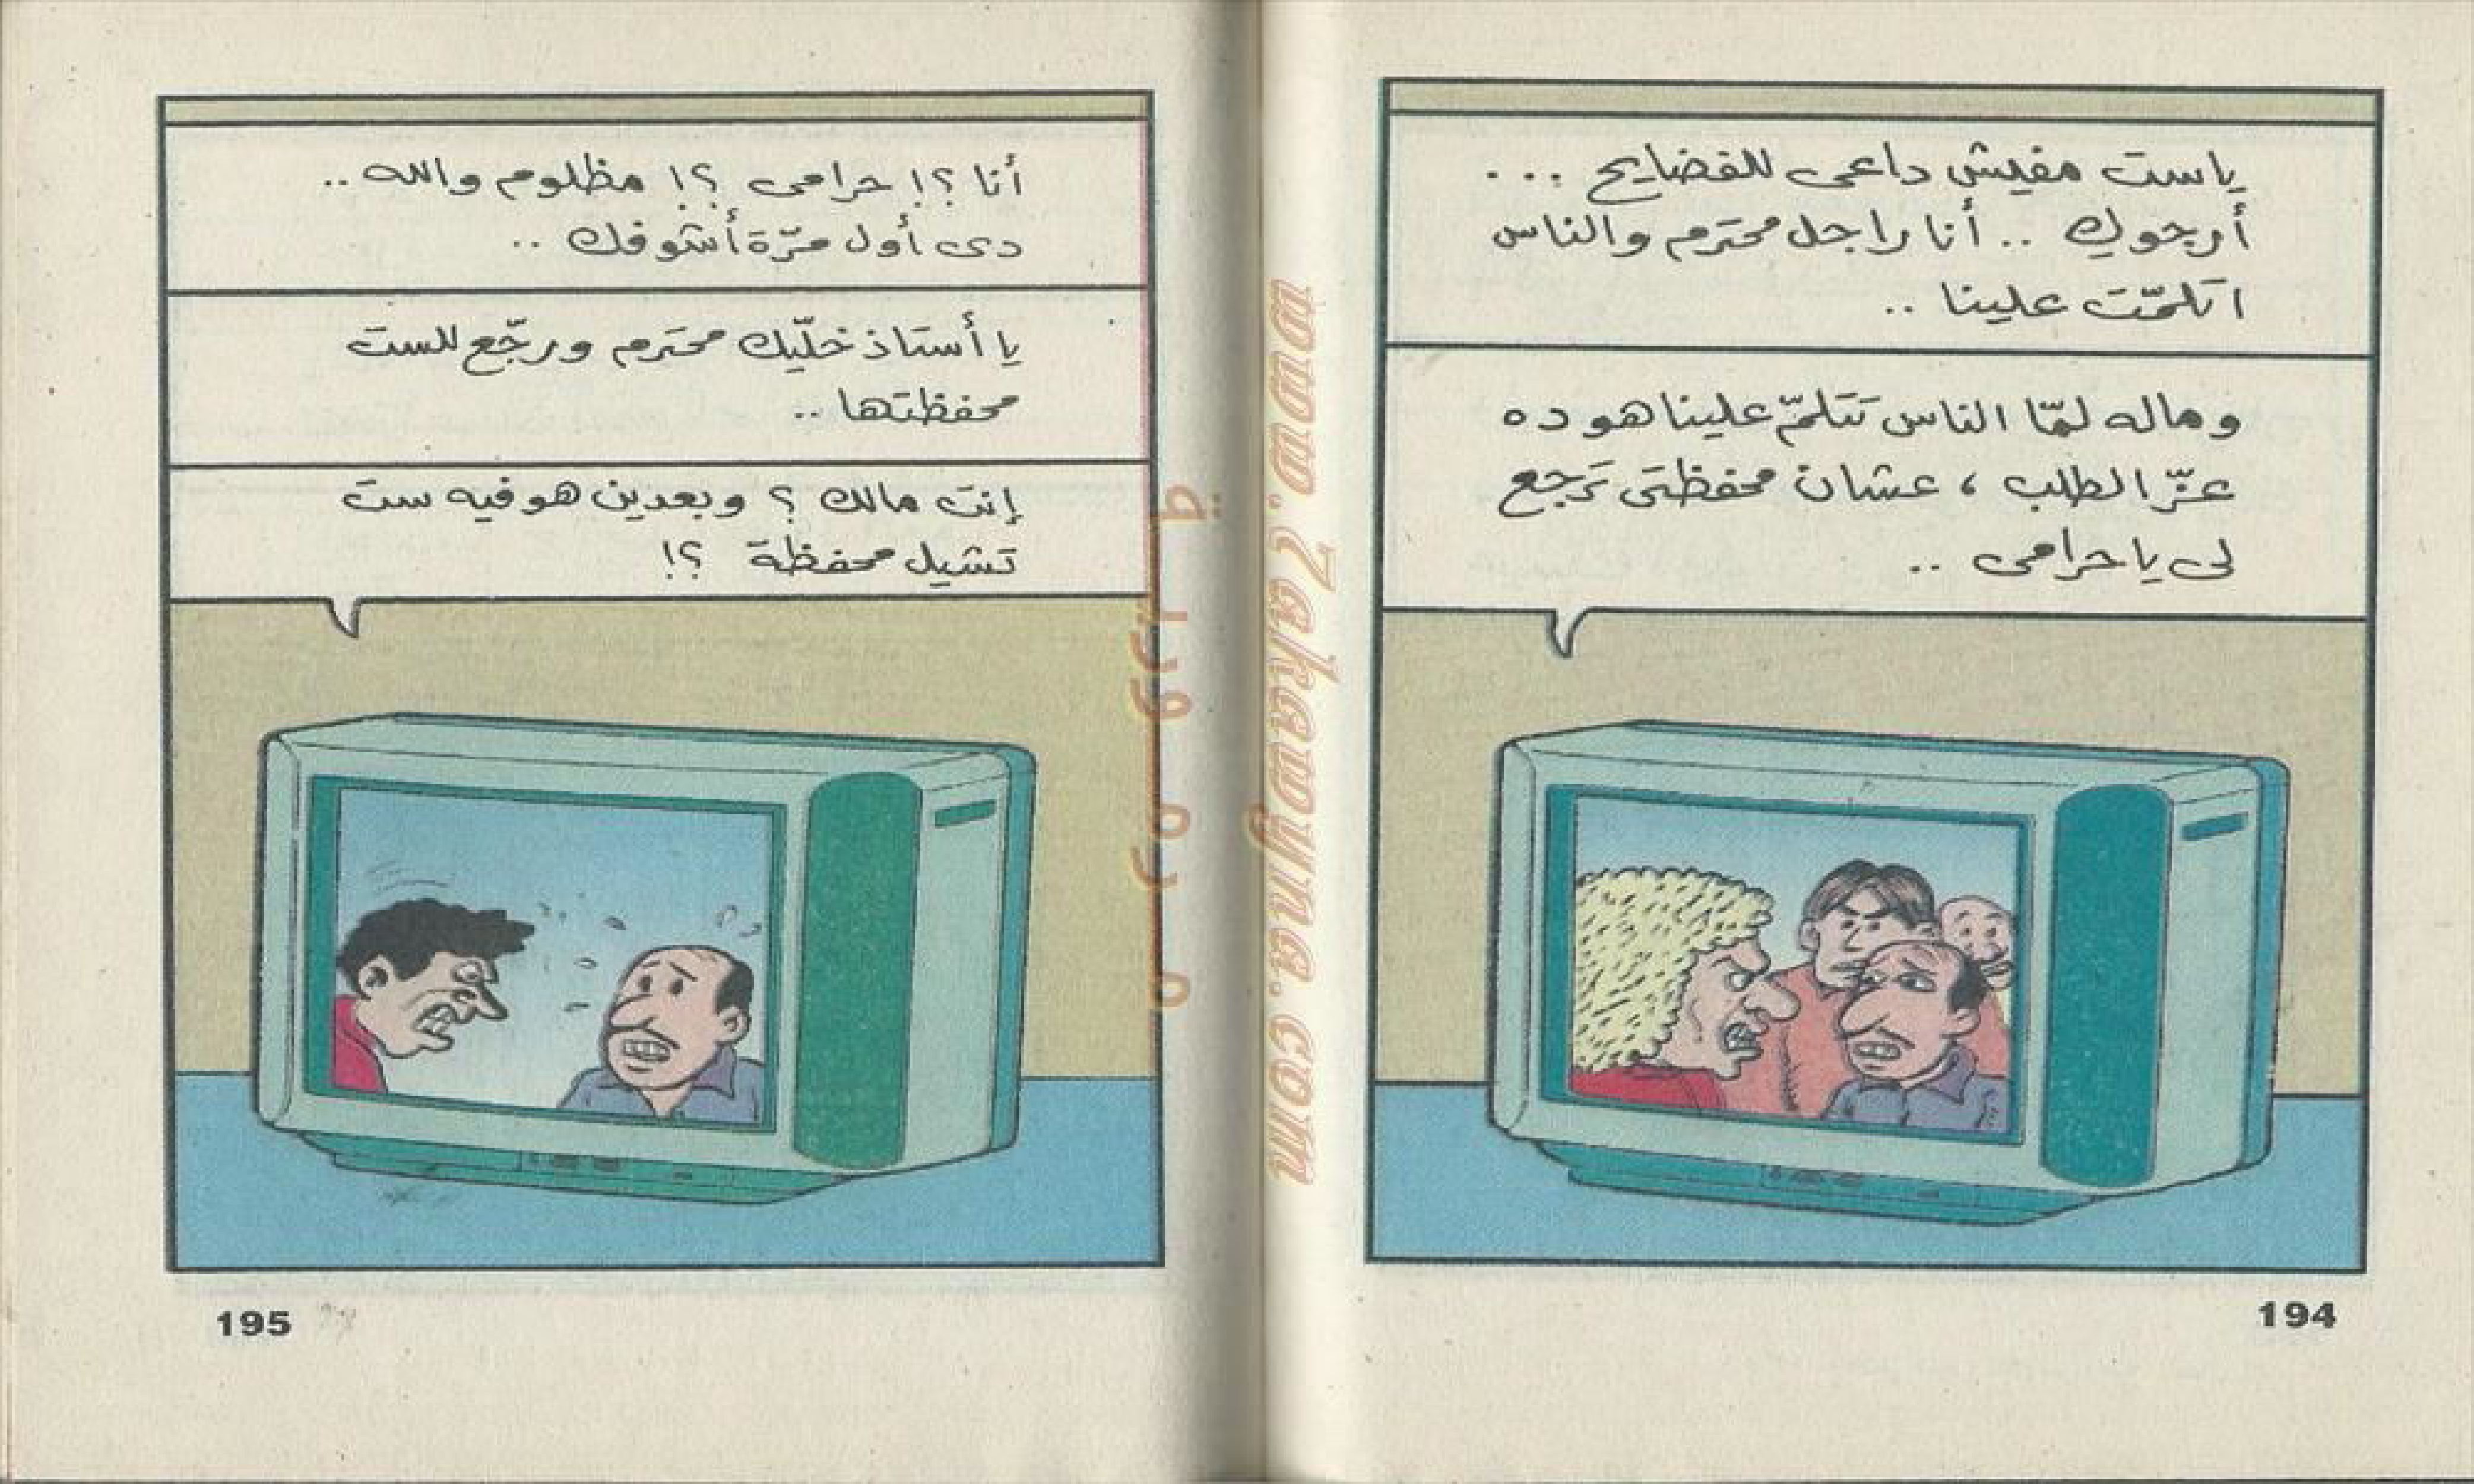 ياست مفيش داعى للفضايح ...
أرجوكِ .. أنا راجل محترم والناس
اتلمّت علينا ..
وماله لمّا الناس تتلمّ علينا هو ده
عزّ الطلب ، عشان محفظتى ترجع
لى يا حرامى ..
194
أنا ؟! حرامى ؟! مظلوم والله ..
دى أول مرّة أشوفك ..
يا أستاذ خلّيك محترم ورجّع للست
محفظتها ..
إنت مالك ؟ وبعدين هو فيه ست
تشيل محفظة ؟!
195
www.Zakawyna.com